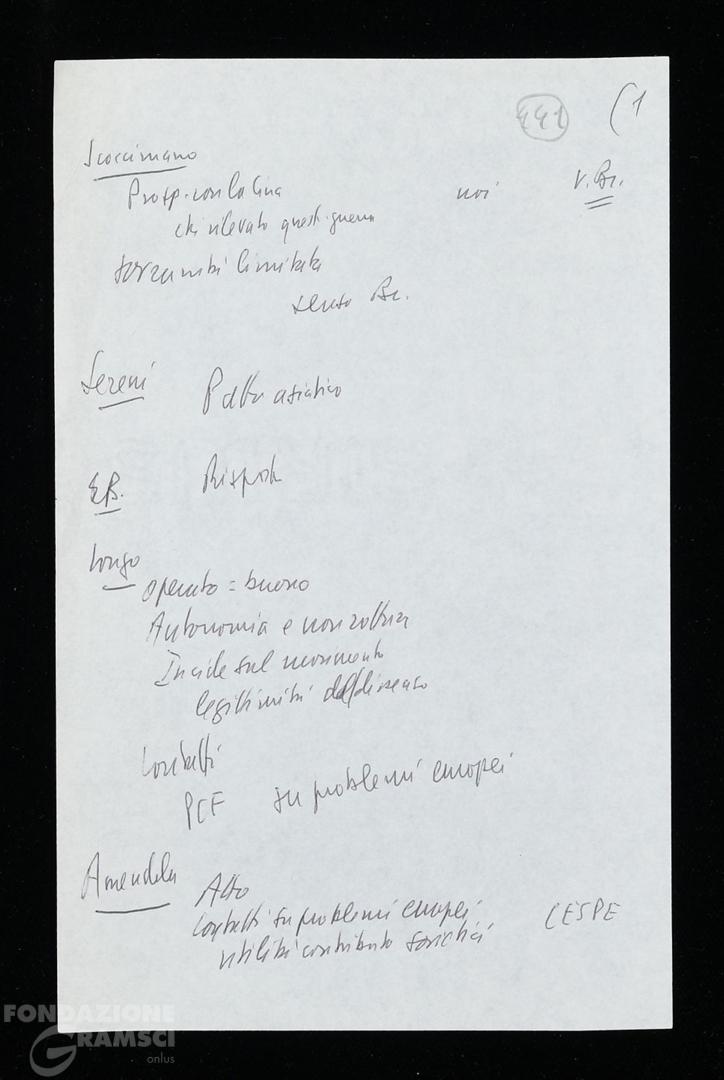 441 (1
Scoccimarro
Prosp. con la Cina noi V. Br.
chi rilevato guerra
limitata
senso Br.
Sereni Patto asiatico
E.B. Risposta
Longo
operato = buono
Autonomia e non rottura
Incide sul movimento
legittimità del dissenso
Contatti
PCF su problemi europei
Amendola
Atto
Contatti su problemi europei CESPE
utilità contributo sovietici
FONDAZIONE
GRAMSCI
onlus